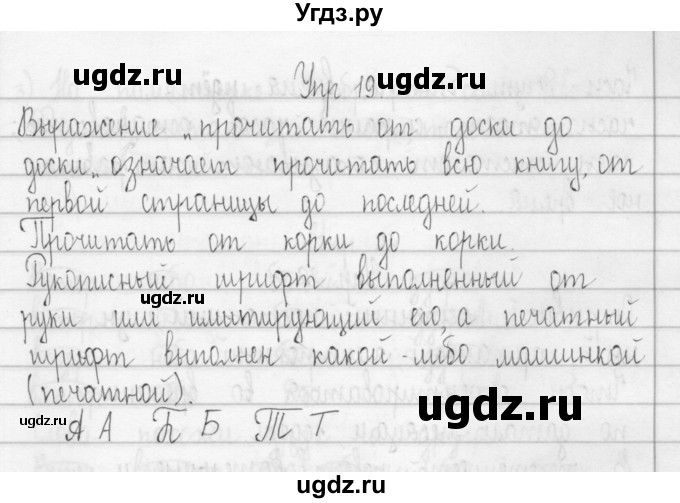 Угдз.ру
ugdz.ru ugdz.ru
Упр 19
Выражение „прочитать от доски до
доски„ означает прочитать всю книгу, от
первой страницы до последней.
Прочитать от корки до корки.
Рукописный шрифт выполненный от
ugdz.ru
руки или имитирующий его, а печатный
шрифт выполнен какой-либо машинкой
(печатной).
ugdz.ru ugdz.ru
А А Б Б Т Т
ugdz.ru ugdz.ru